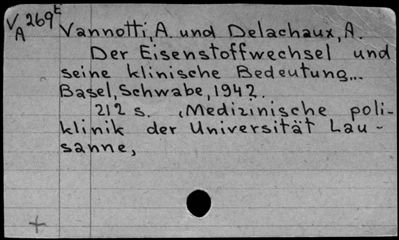 V 269ᵗ
A
Vannotti, A. und Delachaux, A.
Der Eisenstoffwechsel und
seine klinische Bedeutung...
Basel, Schwabe, 1942.
212 s. „Medizinische poli-
klinik der Universität Lau-
sanne,